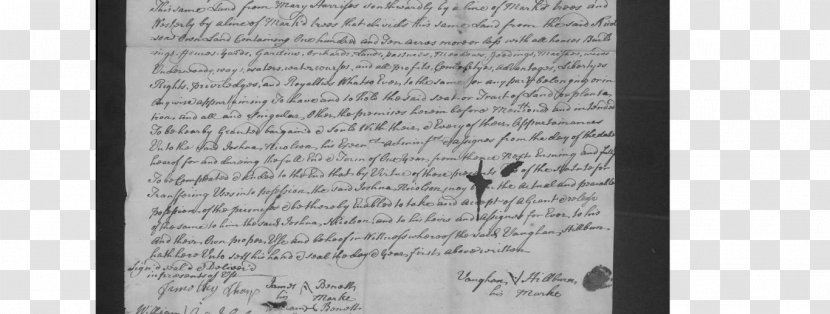 This same Land from Mary Harrises southwardly by a line of Markd trees and
Westerly by a line of Markd trees that divides this same Land from the said Nicol
son Own Land Containing One hundred and Ten acres more or less with all houses Buil
ings Homes Yards, Gardens, Orchards, Lands, pastures, Meadows, feedings, Marshes, woods
Underwoods, ways, waters, water courses, and all profits, Comodityes, advantages, Libertyes
Rights, priviledges, and Royalties Whatso Ever, to the same for any part belonging or in
any wise appertaining To have and to hold the said seat or Tract of Land or planta
tion, and all and Singular, Other the premises herein before Mentiond and intended
To be hearby Granted bargaind & sould With their, & Every of their, Appurtainances
Unto the said Joshua Nicolson, his Execrs Adminrs & assignes from the day of the date
hereof for and during the full End & Term of One Year, from thence Next Ensuing and fully
To be Compleated & Ended to the End that by Virtue of these presents of the Statute for
Transfering Uses into possession, the said Joshua Nicolson, may be in the actual and peaceable
possession of the premises & be thereby Enabled to take and accept of a Grant & releas
of the same to him the said Joshua Nicolson, and to his heirs and Assignes for Ever, to his
And their, Own proper, Use and behoof in Wittness whereof the said Vaughan,
hath here Unto sett his hand & seal the day & Year, first, above written
Sign'd seal'd & Deliver'd
in presents of Us
James Bennett
his
Marke
Vaughan,
his Marke
William